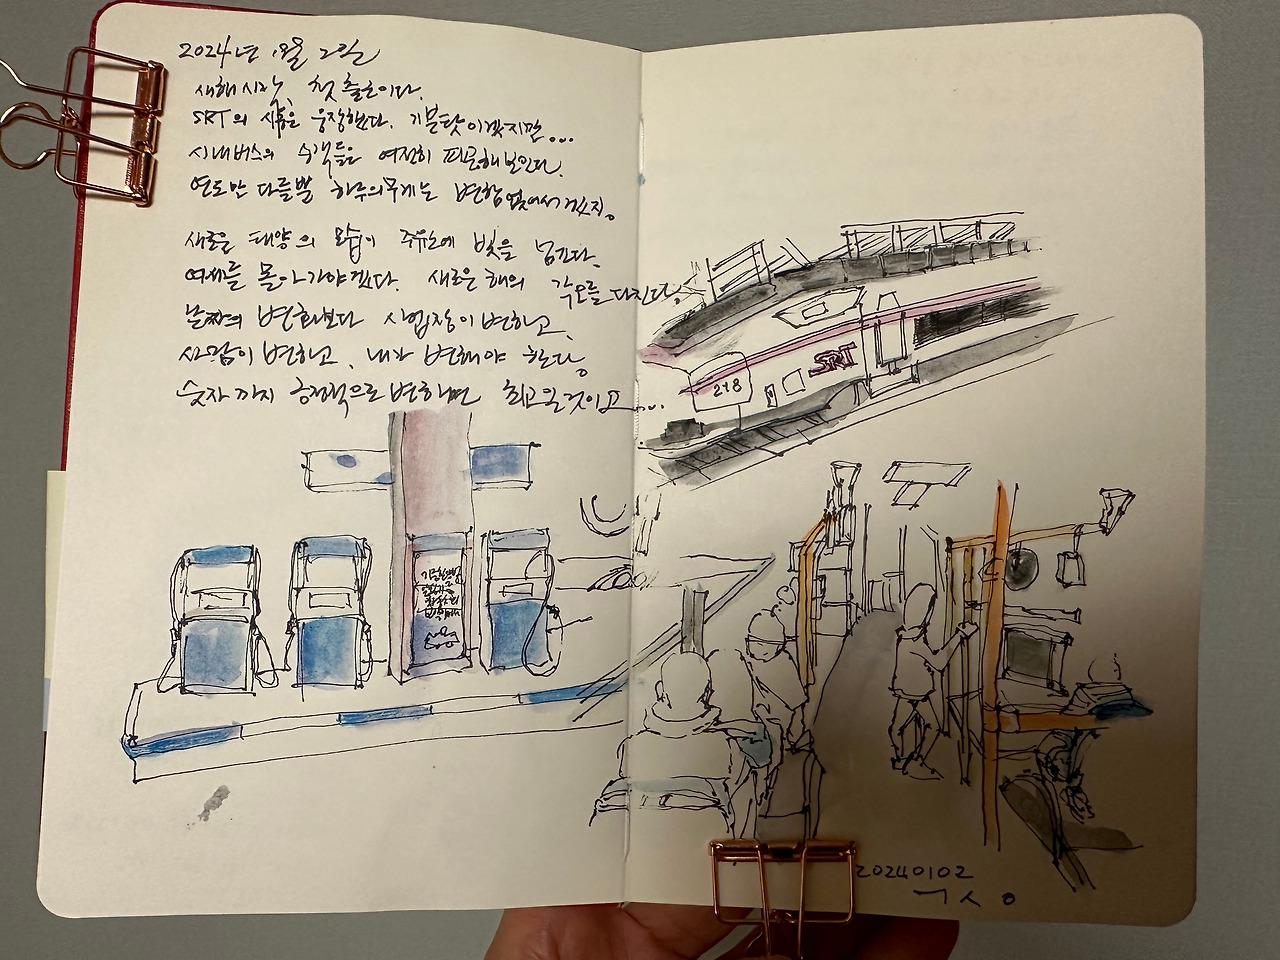 2024년 1월 2일
새해 시작, 첫 출근이다.
SRT의 시동은 웅장했다. 기분탓이겠지만...
시내버스의 승객들은 여전히 피곤해보인다.
연도만 다를뿐 하루의 무게는 변함없어서겠지.
새로운 태양의 모습이 주유소에 빛을 넘긴다.
여세를 몰아가야겠다. 새로운 해의 각오를 다진다.
날짜의 변화보다 사업장이 변하고,
사람이 변하고, 내가 변해야 한다.
숫자까지 긍정적으로 변하면 최고일것이고....
SRT
218
20240102
ㄱㅅㅇ